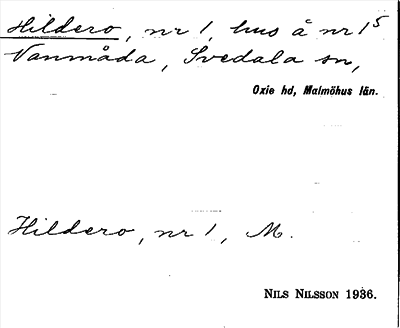 Hildero, nr 1, hus å nr 1⁵
Vanmåda, Svedala sn,
Oxie hd, Malmöhus län.
Hildero, nr 1, M.
NILS NILSSON 1936.